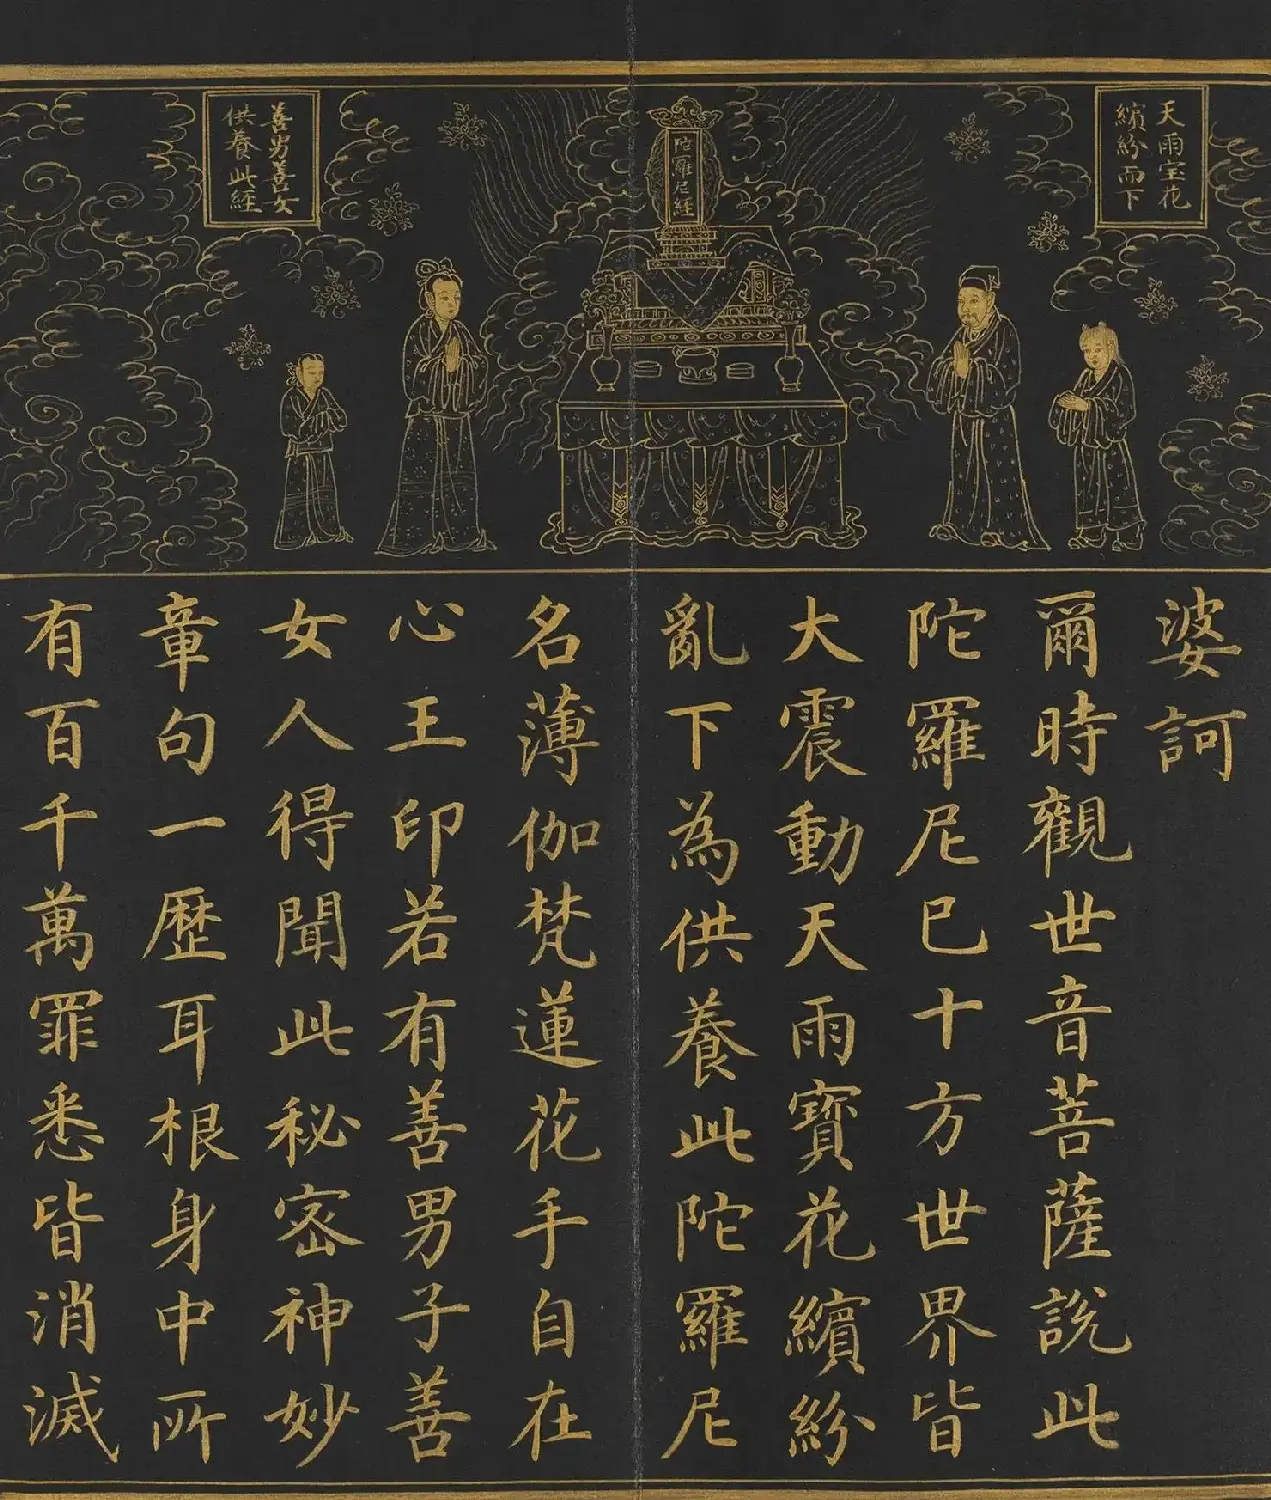 天雨宝花
繽紛而下
陀羅尼経
善男善女
供養此経
婆訶
爾時觀世音菩薩說此
陀羅尼已十方世界皆
大震動天雨寶花繽紛
亂下為供養此陀羅尼
名薄伽梵蓮花手自在
心王印若有善男子善
女人得聞此秘密神妙
章句一歷耳根身中所
有百千萬罪悉皆消滅